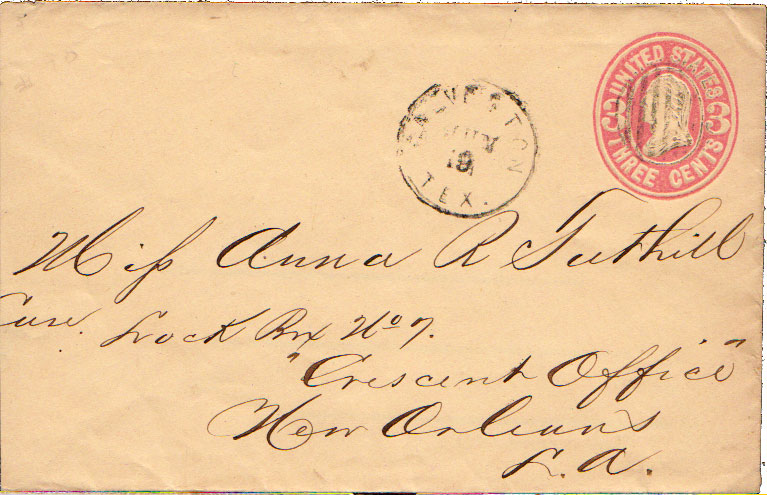 UNITED STATES
3 3
THREE CENTS
GALVESTON
18
TEX.
Miss Anna R Tuthill
Care. Lock Box No 7.
"Crescent Office"
New Orleans
L.a.